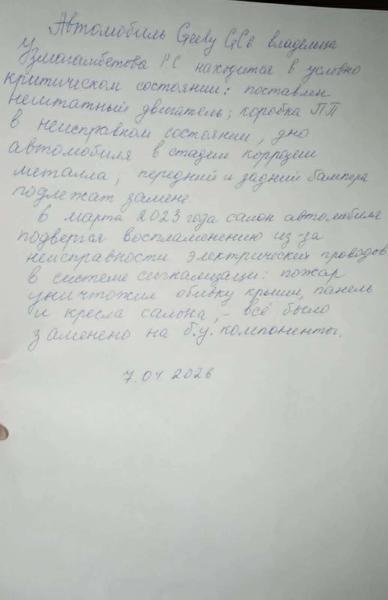 Автомобиль Geely GC6 владельца
Узмагамбетова РС находится в условно
критическом состоянии: поставлен
нештатный двигатель; коробка ПП
в неисправном состоянии, дно
автомобиля в стадии коррозии
металла; передний и задний бампера
подлежат замене.
6 марта 2023 года салон автомобиля
подвергся воспламенению из-за
неисправности электрических проводов
в системе сигнализации: пожар
уничтожил обивку крыши, панель
и кресла салона, – всё было
заменено на б.у. компоненты.
7.04 2026